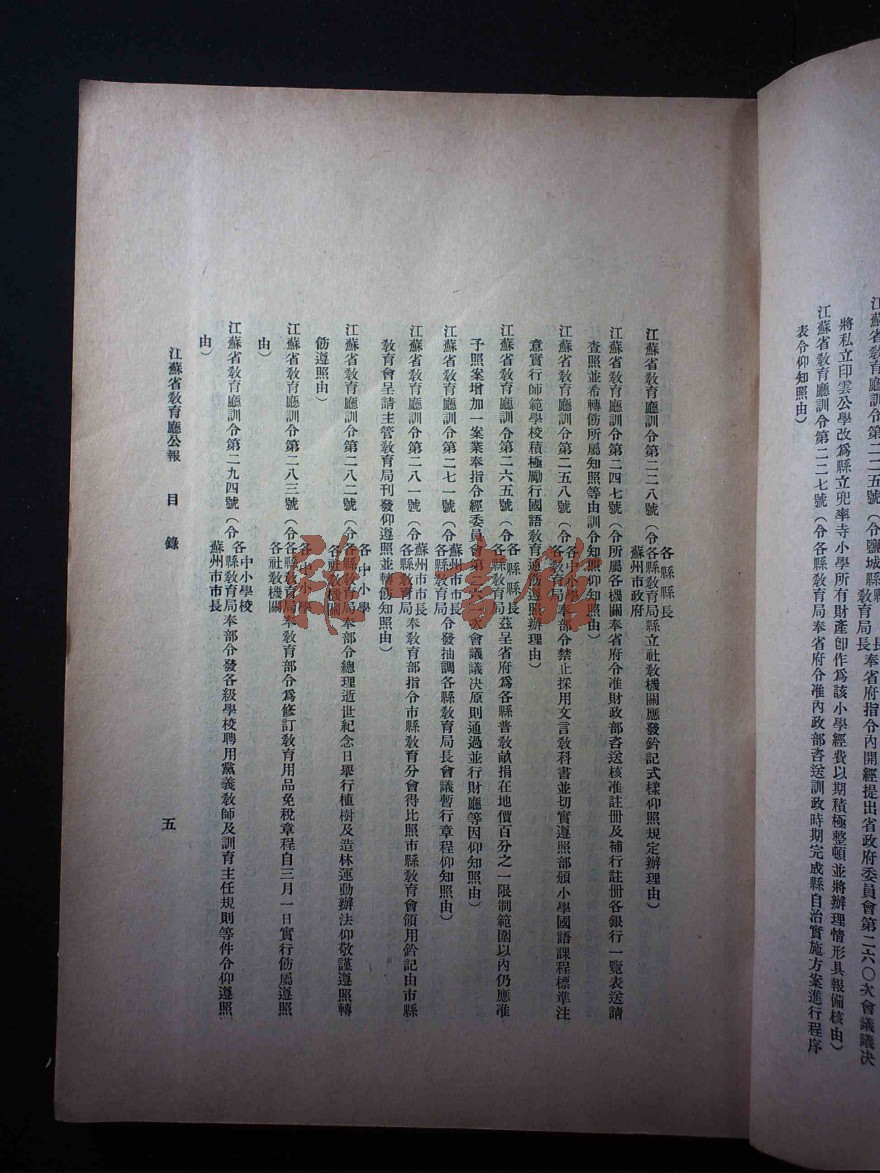 江蘇省教育廳訓令第二二五號（令鹽城縣縣長教育局長奉省府指令內開經提出省政府委員會第二六〇次會議議決
將私立印雲公學改爲縣立兜率寺小學所有財產卽作爲該小學經費以期積極整頓並將辦理情形具報備核由）
江蘇省教育廳訓令第二二七號（令各縣教育局奉省府令准內政部咨送訓政時期完成縣自治實施方案進行程序
表令仰知照由）
江蘇省教育廳訓令第二二八號（令各縣縣長各縣教育局蘇州市政府縣立社教機關應發鈐記式樣仰照規定辦理由）
江蘇省教育廳訓令第二四七號（令所屬各機關奉省府令准財政部咨送核准註册及補行註册各銀行一覽表送請
查照並希轉飭所屬知照等由訓令知照仰知照由）
江蘇省教育廳訓令第二五八號（令各中小學各縣教育局奉部令禁止採用文言教科書並切實遵照部頒小學國語課程標準注
意實行師範學校積極勵行國語教育通飭遵照辦理由）
江蘇省教育廳訓令第二六五號（令各縣縣長各縣教育局茲呈省府爲各縣普教畝捐在地價百分之一限制範圍以內仍應准
予照案增加一案業奉指令經委員會第二六 次會議議決原則通過並行財廳等因仰知照由）
江蘇省教育廳訓令第二七一號（令蘇州市市長各縣教育局令發抽調各縣教育局長會議暫行章程仰知照由）
江蘇省教育廳訓令第二八一號（令蘇州市市長各縣教育局奉教育部指令市縣教育分會得比照市縣教育會領用鈐記由市縣
教育會呈請主管教育局刊發仰遵照並轉飭知照由）
江蘇省教育廳訓令第二八二號（令各中小學各縣教育局各社教機關奉部令總理逝世紀念日舉行植樹及造林運動辦法仰敬謹遵照轉
飭遵照由）
江蘇省教育廳訓令第二八三號（令各中小學各縣教育局各社教機關奉教育部令爲修訂教育用品免稅章程自三月一日實行飭屬遵照
由）
江蘇省教育廳訓令第二九四號（令各中小學校各縣教育局蘇州市市長奉部令發各級學校聘用黨義教師及訓育主任規則等件令仰遵照
由）
江蘇省教育廳公報　目錄　五